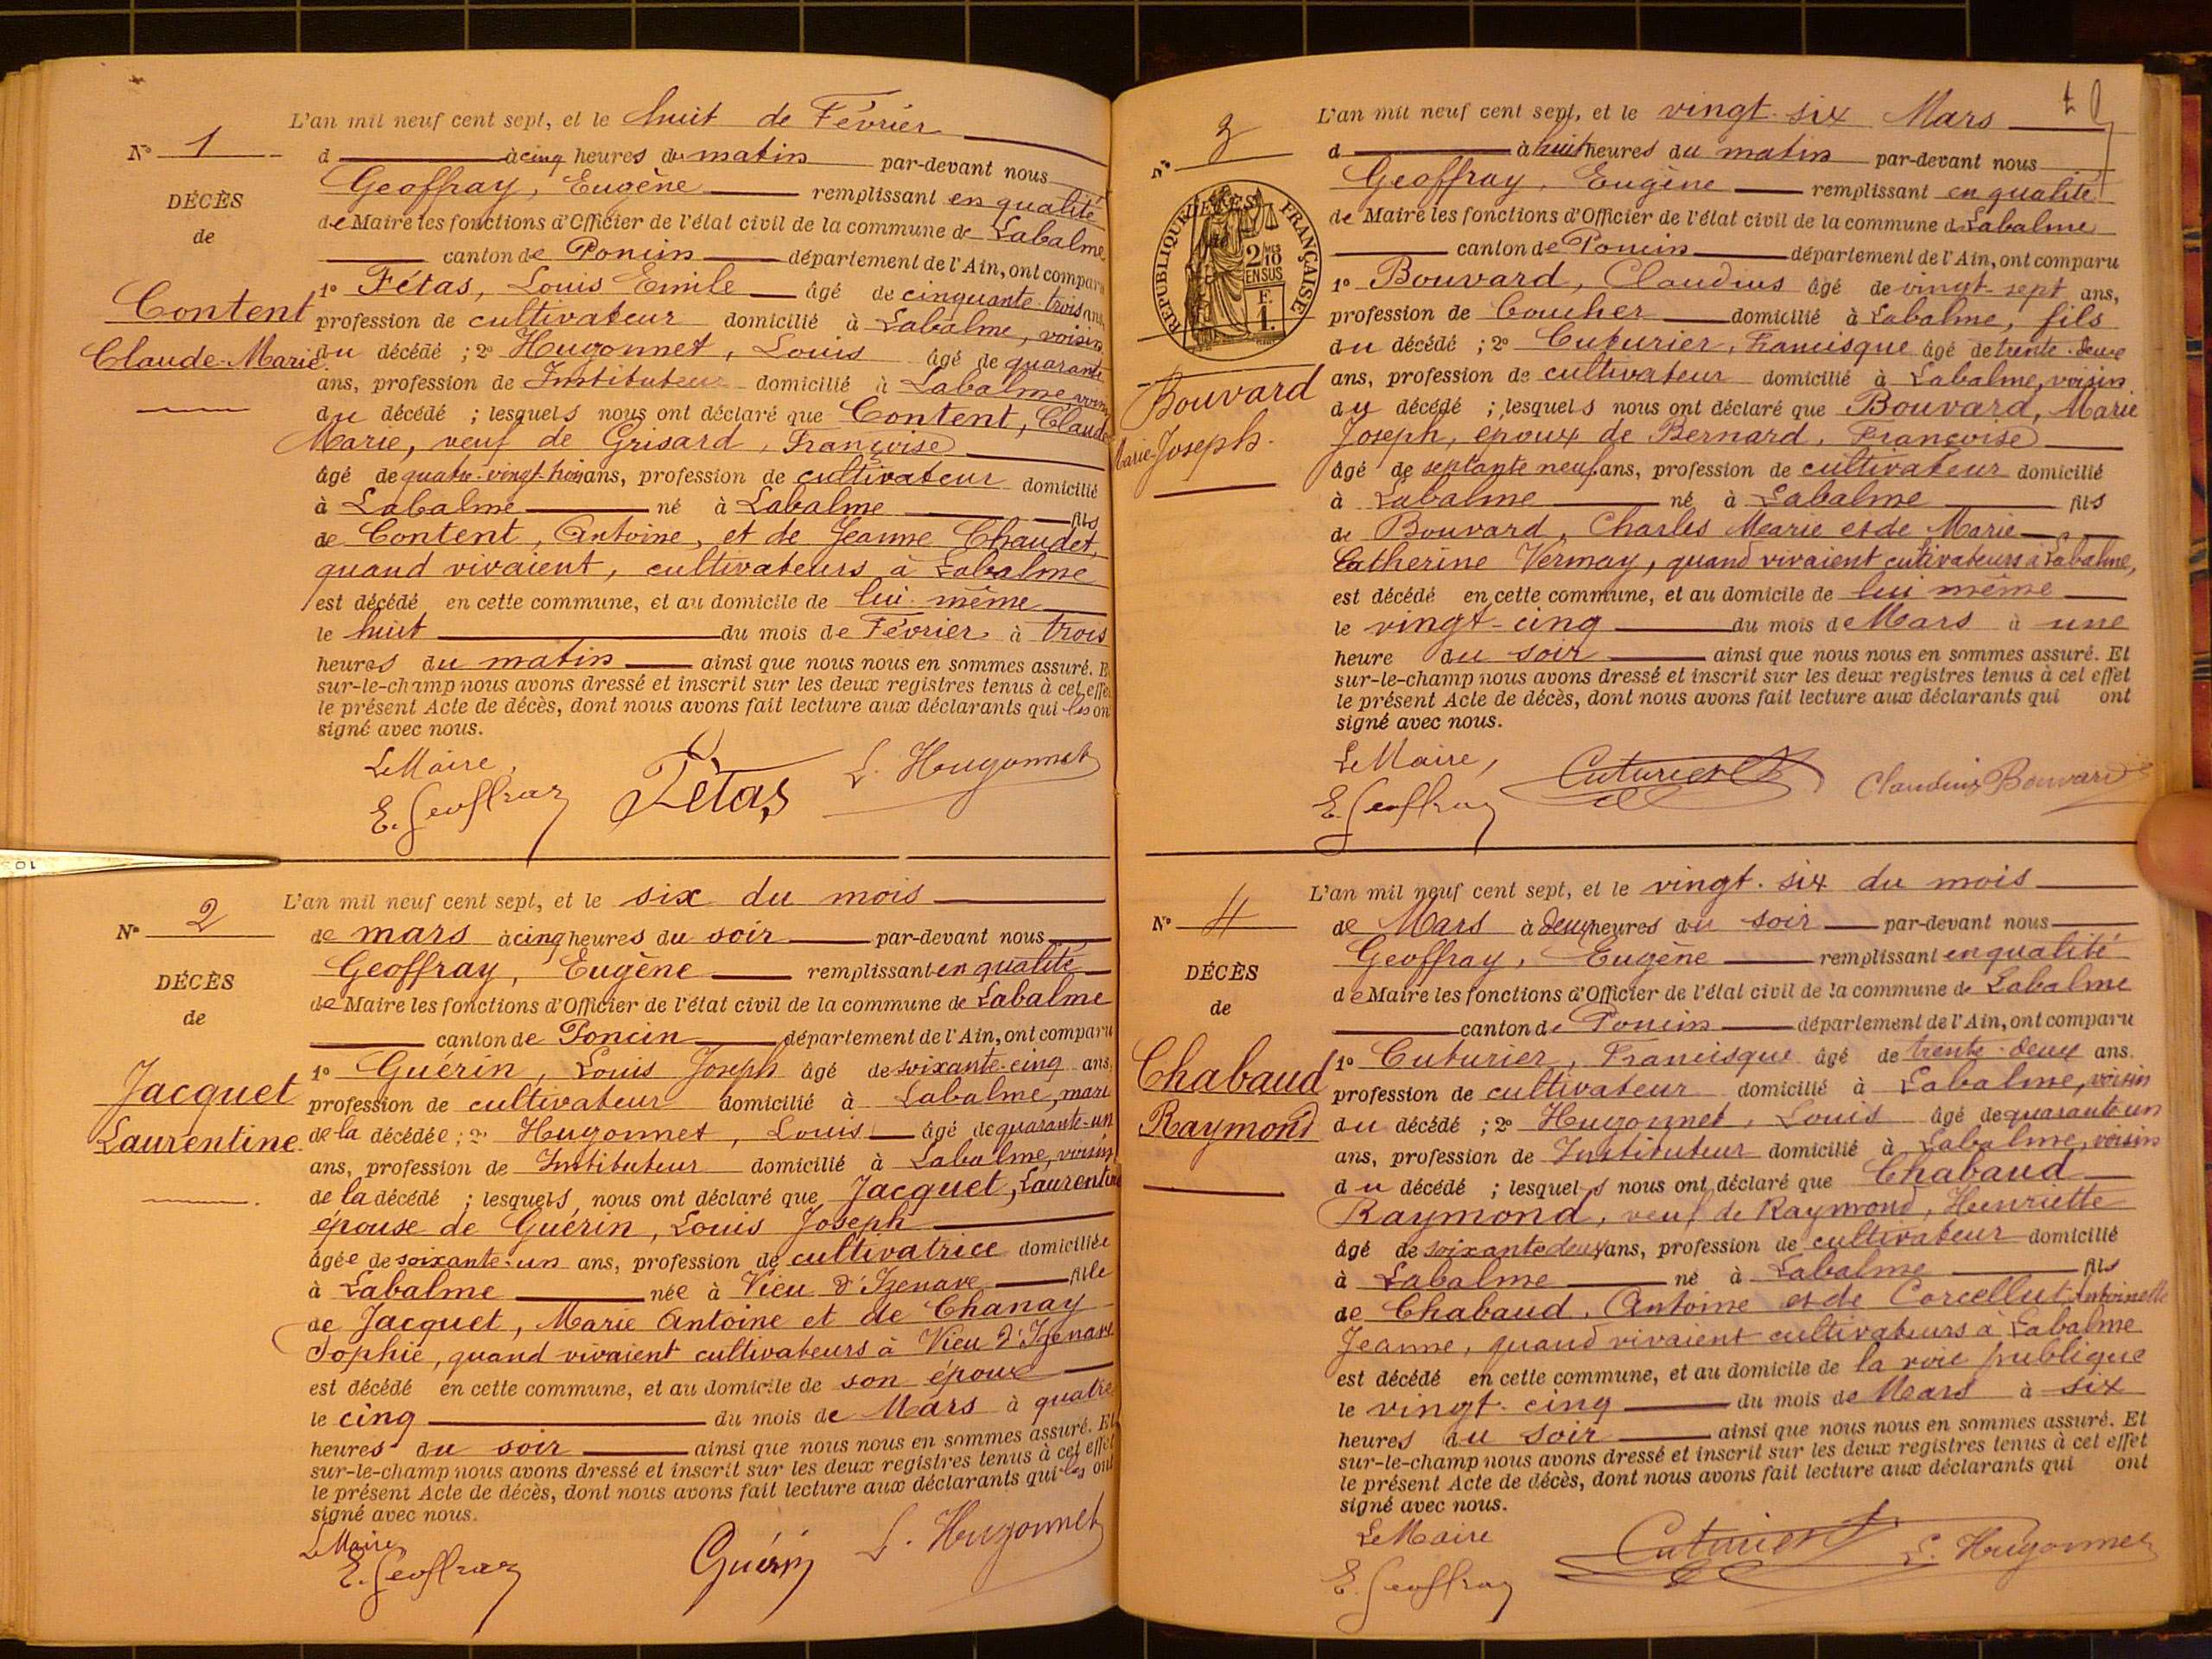 L'an mil neuf cent sept, et le huit de Février
N° 1
d à cinq heures du matin par-devant nous
Geoffray, Eugène remplissant en qualité
DÉCÈS
de Maire les fonctions d'Officier de l'état civil de la commune de Labalme
de
canton de Poncin département de l'Ain, ont comparu
1° Fétas, Louis Emile âgé de cinquante-trois ans,
Content
profession de cultivateur domicilié à Labalme, voisin
Claude-Marie
du décédé ; 2° Hugonnet, Louis âgé de quarante
ans, profession de Instituteur domicilié à Labalme voisin
du décédé ; lesquels nous ont déclaré que Content, Claude
Marie, veuf de Grisard, Françoise
âgé de quatre-vingt-trois ans, profession de cultivateur domicilié
à Labalme né à Labalme fils
de Content, Antoine, et de Jeanne Chaudet,
quand vivaient, cultivateurs à Labalme
est décédé en cette commune, et au domicile de lui-même
le huit du mois de Février à trois
heures du matin ainsi que nous nous en sommes assuré. Et
sur-le-champ nous avons dressé et inscrit sur les deux registres tenus à cet effet
le présent Acte de décès, dont nous avons fait lecture aux déclarants qui les ont
signé avec nous.
Le Maire,
E. Geoffray Fétas L. Hugonnet
L'an mil neuf cent sept, et le six du mois
N° 2
de mars à cinq heures du soir par-devant nous
Geoffray, Eugène remplissant en qualité
DÉCÈS
de Maire les fonctions d'Officier de l'état civil de la commune de Labalme
de
canton de Poncin département de l'Ain, ont comparu
1° Guérin, Louis Joseph âgé de soixante-cinq ans,
Jacquet
profession de cultivateur domicilié à Labalme, mari
Laurentine
de la décédée ; 2° Hugonnet, Louis âgé de quarante-un
ans, profession de Instituteur domicilié à Labalme, voisin
de la décédé ; lesquels nous ont déclaré que Jacquet, Laurentine
épouse de Guérin, Louis Joseph
âgée de soixante-un ans, profession de cultivatrice domiciliée
à Labalme née à Vieu d'Izenave fille
de Jacquet, Marie Antoine et de Chanay
Sophie, quand vivaient cultivateurs à Vieu d'Izenave
est décédé en cette commune, et au domicile de son époux
le cinq du mois de Mars à quatre
heures du soir ainsi que nous nous en sommes assuré. Et
sur-le-champ nous avons dressé et inscrit sur les deux registres tenus à cet effet
le présent Acte de décès, dont nous avons fait lecture aux déclarants qui les ont
signé avec nous.
Le Maire
E. Geoffray Guérin L. Hugonnet
L'an mil neuf cent sept, et le vingt-six Mars
N° 3
d à huit heures du matin par-devant nous
Geoffray, Eugène remplissant en qualité
de Maire les fonctions d'Officier de l'état civil de la commune de Labalme
REPUBLIQUE FRANÇAISE
2/10 EN SUS
F. 1.
canton de Poncin département de l'Ain, ont comparu
1° Bouvard, Claudius âgé de vingt-sept ans,
profession de Boucher domicilié à Labalme, fils
du décédé ; 2° Cuturier, Francisque âgé de trente-deux
Bouvard
Marie-Joseph.
ans, profession de cultivateur domicilié à Labalme, voisin
du décédé ; lesquels nous ont déclaré que Bouvard, Marie
Joseph, époux de Bernard, Françoise
âgé de septante neuf ans, profession de cultivateur domicilié
à Labalme né à Labalme fils
de Bouvard, Charles Marie et de Marie
Catherine Vermay, quand vivaient cultivateurs à Labalme,
est décédé en cette commune, et au domicile de lui même
le vingt-cinq du mois de Mars à une
heure du soir ainsi que nous nous en sommes assuré. Et
sur-le-champ nous avons dressé et inscrit sur les deux registres tenus à cet effet
le présent Acte de décès, dont nous avons fait lecture aux déclarants qui ont
signé avec nous.
Le Maire,
E. Geoffray Cuturier Claudius Bouvard
L'an mil neuf cent sept, et le vingt-six du mois
N° 4
de Mars à deux heures du soir par-devant nous
Geoffray, Eugène remplissant en qualité
DÉCÈS
de Maire les fonctions d'Officier de l'état civil de la commune de Labalme
de
canton de Poncin département de l'Ain, ont comparu
1° Cuturier, Francisque âgé de trente-deux ans.
Chabaud
profession de cultivateur domicilié à Labalme, voisin
Raymond
du décédé ; 2° Hugonnet, Louis âgé de quarante un
ans, profession de Instituteur domicilié à Labalme, voisin
du décédé ; lesquels nous ont déclaré que Chabaud
Raymond, veuf de Raymond, Henriette
âgé de soixante deux ans, profession de cultivateur domicilié
à Labalme né à Labalme fils
de Chabaud, Antoine et de Corcellut Antoinette
Jeanne, quand vivaient cultivateurs à Labalme
est décédé en cette commune, et au domicile de la voie publique
le vingt-cinq du mois de Mars à six
heures du soir ainsi que nous nous en sommes assuré. Et
sur-le-champ nous avons dressé et inscrit sur les deux registres tenus à cet effet
le présent Acte de décès, dont nous avons fait lecture aux déclarants qui ont
signé avec nous.
Le Maire
E. Geoffray Cuturier L. Hugonnet